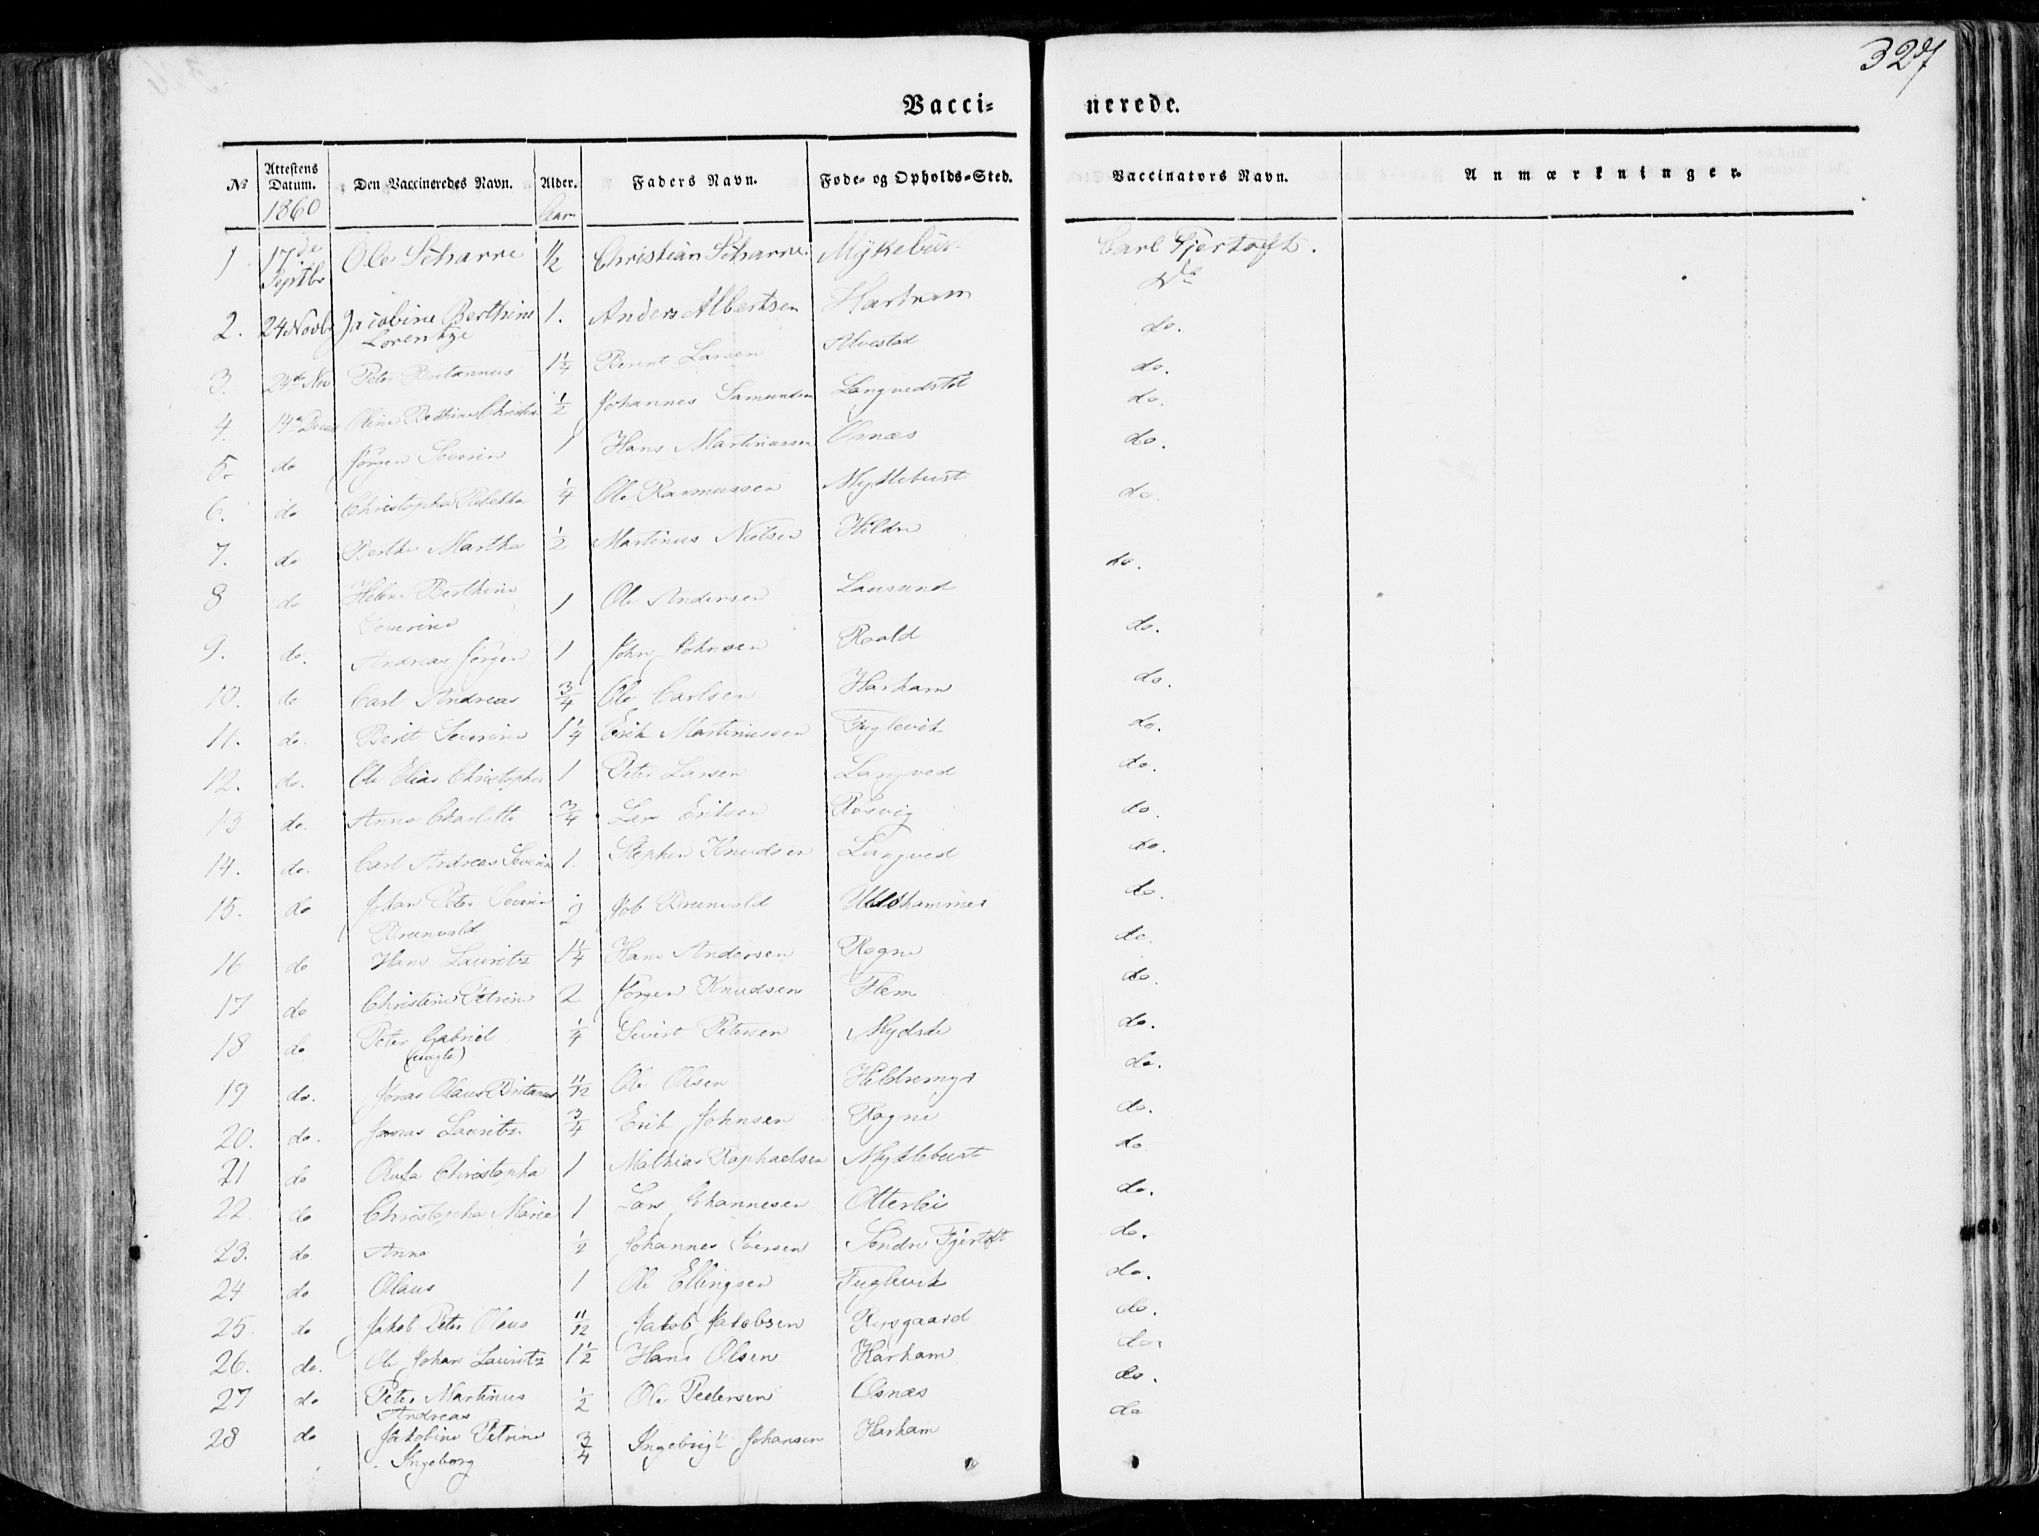 327
Vacci- nerede.
No Attestens Datum. Den Vaccineredes Navn. Alder. Faders Navn. Føde- og Opholds-Sted. Vaccinators Navn. Anmærkninger.
1860 Aar
1 17de Septbr Ole Scharre 1/2 Christian Scharre Carl Fjertoft.
2. 24 Novbr Jacobine Berthine Lorentze 1. Anders Albertsen Harham Do
3. 24de Nov Peter Britannus 1 1/4 Berent Larsen Alvestad do.
4. 14de Decbr Oline Bethine Christine 1/2 Johannes Samundsen Longvedstøl do.
5. do Jørgen Severin 1 Hans Martinussen Osnæs do.
6. do Christopha Rebekka 1/4 Ole Rasmussen Myklebust do.
7. do Berthe Martha 1/2 Martinus Nielsen Hildre do.
8 do Helene Berthine Severine 1 Ole Andersen Lausund do.
9. do. Andreas Jørgen 1 John Johnsen Roald do.
10. do Carl Andreas 3/4 Ole Carlsen Harham do.
11. do. Berit Severine 1 1/4 Erik Martinussen Fuglevik do.
12. do. Ole Elias Christopher 1 Peter Larsen Langved do.
13 do. Anne Charlotte 3/4 Lars Eriksen Røsvig do.
14. do. Carl Andreas Severin 1. Stephen Knudsen Langved do.
15. do Johan Peter Severin Brunvold 2 Job Brunvold Uldshammer do.
16 do Hans Lauritz 1 1/4 Hans Andersen Rogne do.
17 do Christine Petrine 2 Jørgen Knudsen Flem do.
18 do Peter Gabriel (uægte) 1/4 Sivert Petersen do.
19 do. Jonas Olaus Britanus 11/12 Ole Olsen Hildremyr do.
20. do. Jonas Lauritz 3/4 Erik Johnsen Rogne do.
21 do Olufa Christopha 1 Mathias Raphaelsen Myklebust do
22. do Christopha Marie 1 Lars Johannesen Otterlei do.
23. do. Anne 1/2 Johannes Iversen Søndre Fjertoft do.
24 do Olaus 1 Ole Ellingsen Fuglevik do.
25. do Jakob Peter Olaus 11/12 Jakob Jakobsen Røsgaard do.
26. do. Ole Johan Lauritz 1 1/2 Hans Olsen Harham do.
27 do Peter Martinus Andreas 1/2 Ole Pedersen Osnæs do.
28 do Jakobine Petrine Ingeborg 3/4 Ingebrigt Johansen Harham do